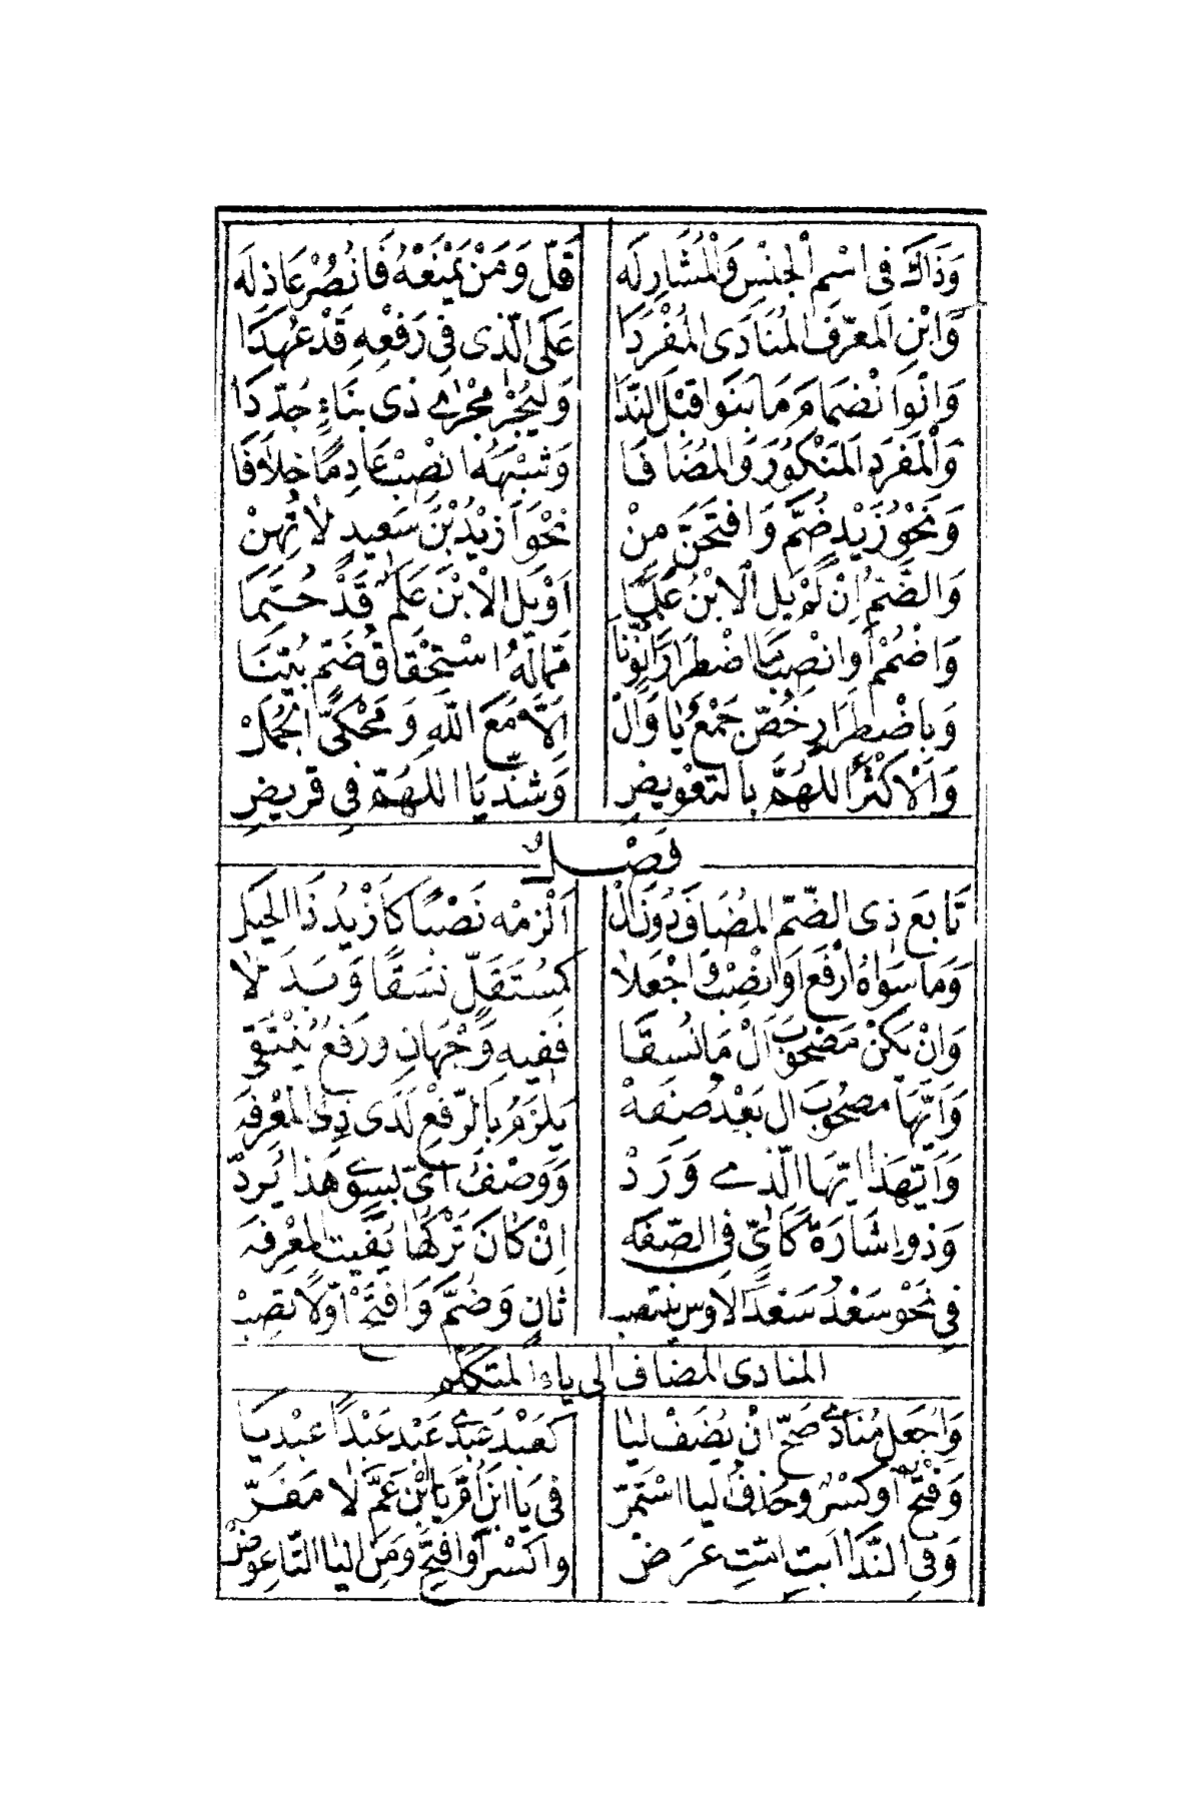 وَذَاكَ فِى اسْمِ الْجِنْسِ وَالْمُشَارِ لَه قَلَّ وَمَنْ يَمْنَعْهُ فَانْصُرْ عَاذِلَه
وَابْنِ الْمُعَرَّفَ الْمُنَادَى الْمُفْرَدَا عَلَى الَّذِى فِى رَفْعِهِ قَدْ عُهِدَا
وَانْوِ انْضِمَامَ مَا بَنَوْا قَبْلَ النِّدَا وَلْيُجْرَ مُجْرٰى ذِى بِنَاءٍ جُدِّدَا
وَالْمُفْرَدَ الْمَنْكُورَ وَالْمُضَافَا وَشِبْهَهُ انْصِبْ عَادِمًا خِلَافَا
وَنَحْوَ زَيْدٍ ضُمَّ وَافْتَحَنَّ مِنْ نَحْوِ أَزَيْدُ بْنَ سَعِيدٍ لَا تَهِنْ
وَالضَّمُّ اِنْ لَمْ يَلِ الْاِبْنُ عَلَمَا اَوْ يَلِ الْاِبْنَ عَلَمٌ قَدْ حُتِمَا
وَاضْمُمْ أَوِ انْصِبْ مَا اضْطِرَارًا نُوِّنَا مِمَّا لَهُ اسْتِحْقَاقُ ضَمٍّ بُيِّنَا
وَبِاضْطِرَارٍ خُصَّ جَمْعُ يَا وَاَلْ اِلَّا مَعَ اللّٰهِ وَمَحْكِىِّ الْجُمَلْ
وَالْاَكْثَرُ اللهُمَّ بِالتَّعْوِيضِ وَشَذَّ يَا اللهُمَّ فِى قَرِيضِ
فَصْلٌ
تَابِعَ ذِى الضَّمِّ الْمُضَافَ دُونَ اَلْ اَلْزِمْهُ نَصْبًا كَأَزَيْدُ ذَا الْحِيَلْ
وَمَا سِوَاهُ ارْفَعْ اَوِ انْصِبْ وَاجْعَلَا كَمُسْتَقِلٍّ نَسَقًا وَبَدَلَا
وَاِنْ يَكُنْ مَصْحُوبَ اَلْ مَا نُسِقَا فَفِيهِ وَجْهَانِ وَرَفْعٌ يُنْتَقَى
وَاَيُّهَا مَصْحُوبَ ال بَعْدُ صِفَهْ يَلْزَمُ بِالرَّفْعِ لَدَى ذِى الْمَعْرِفَه
وَاَيُّهٰذَا اَيُّهَا الَّذِى وَرَدْ وَوَصْفُ اَىٍّ بِسِوٰى هَذَا يُرَدّ
وَذُو اِشَارَةٍ كَاَىٍّ فِى الصِّفَه اِنْ كَانَ تَرْكُهَا يُفِيتُ الْمَعْرِفَه
فِى نَحْوِ سَعْدُ سَعْدَ الاَوْسِ يَنْتَصِبْ ثَانٍ وَضُمَّ وَافْتَحْ اَوَّلًا تُصِبْ
المنادى المضاف الى ياء المتكلم
وَاجْعَلْ مُنَادًى صَحَّ اِنْ يُضَفْ لِيَا كَعَبْدِ عَبْدِى عَبْدَ عَبْدَا عَبْدِيَا
وَفَتْحٌ اَوْ كَسْرٌ وَحَذْفُ اليا اسْتَمَرّ فِى يَا ابْنَ اُمَّ يَا ابْنَ عَمَّ لَا مَفَرّ
وَفِى النِّدَا اَبَتِ اُمَّتِ عَرَضْ وَاكْسِرْ اَوِ افْتَحْ وَمِنَ اليَا التَّا عِوَضْ